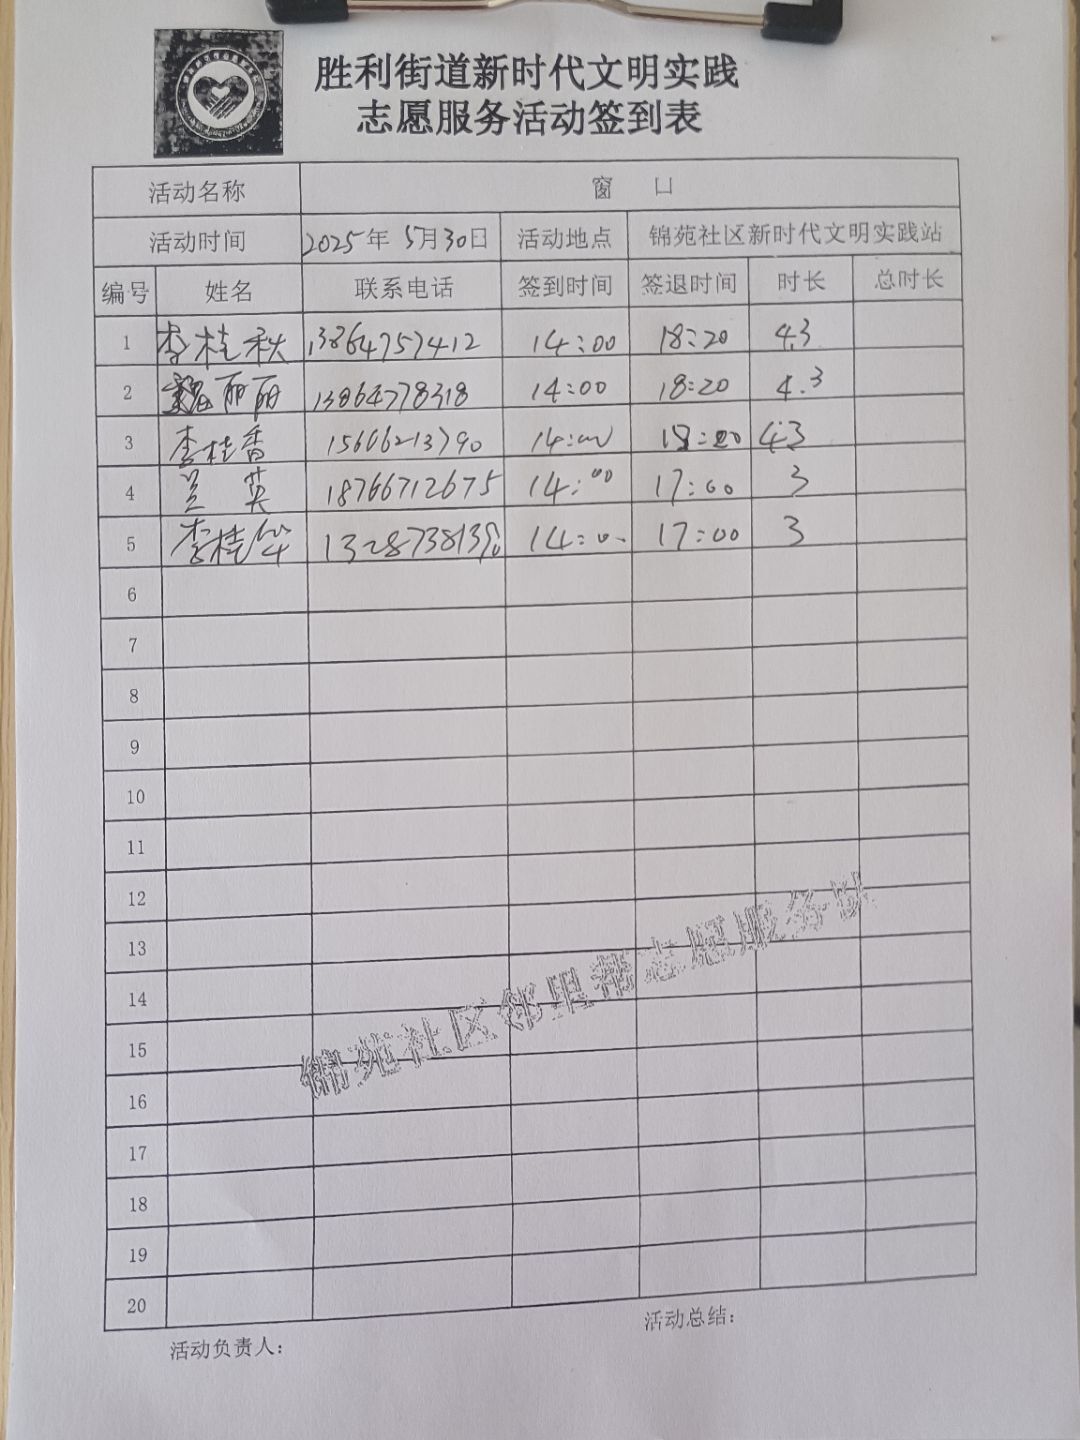 胜利街道新时代文明实践
志愿服务活动签到表
活动名称 窗 口
活动时间 2025年 5月30日 活动地点 锦苑社区新时代文明实践站
编号 姓名 联系电话 签到时间 签退时间 时长 总时长
1 李桂秋 13864757412 14:00 18:20 4.3
2 魏丽丽 13864778318 14:00 18:20 4.3
3 李桂香 15606213790 14:00 18:20 4.3
4 兰英 18766712675 14:00 17:00 3
5 李桂华 13287381390 14:00 17:00 3
6
7
8
9
10
11
12
13
14
15
16
17
18
19
20
锦苑社区邻里帮志愿服务队
活动负责人:
活动总结: